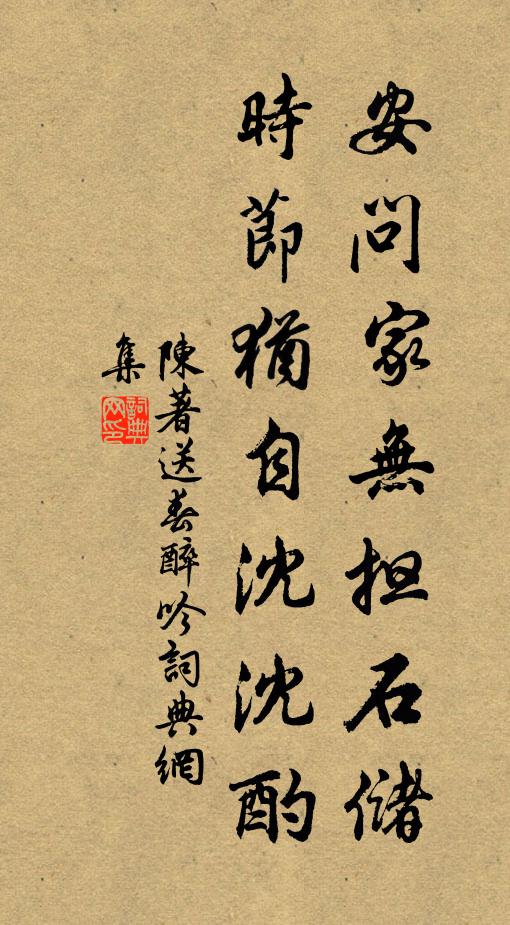 安問家無担石儲
時節猶自沈沈酌
陳著送春醉吟詞典網
集
詞典网印